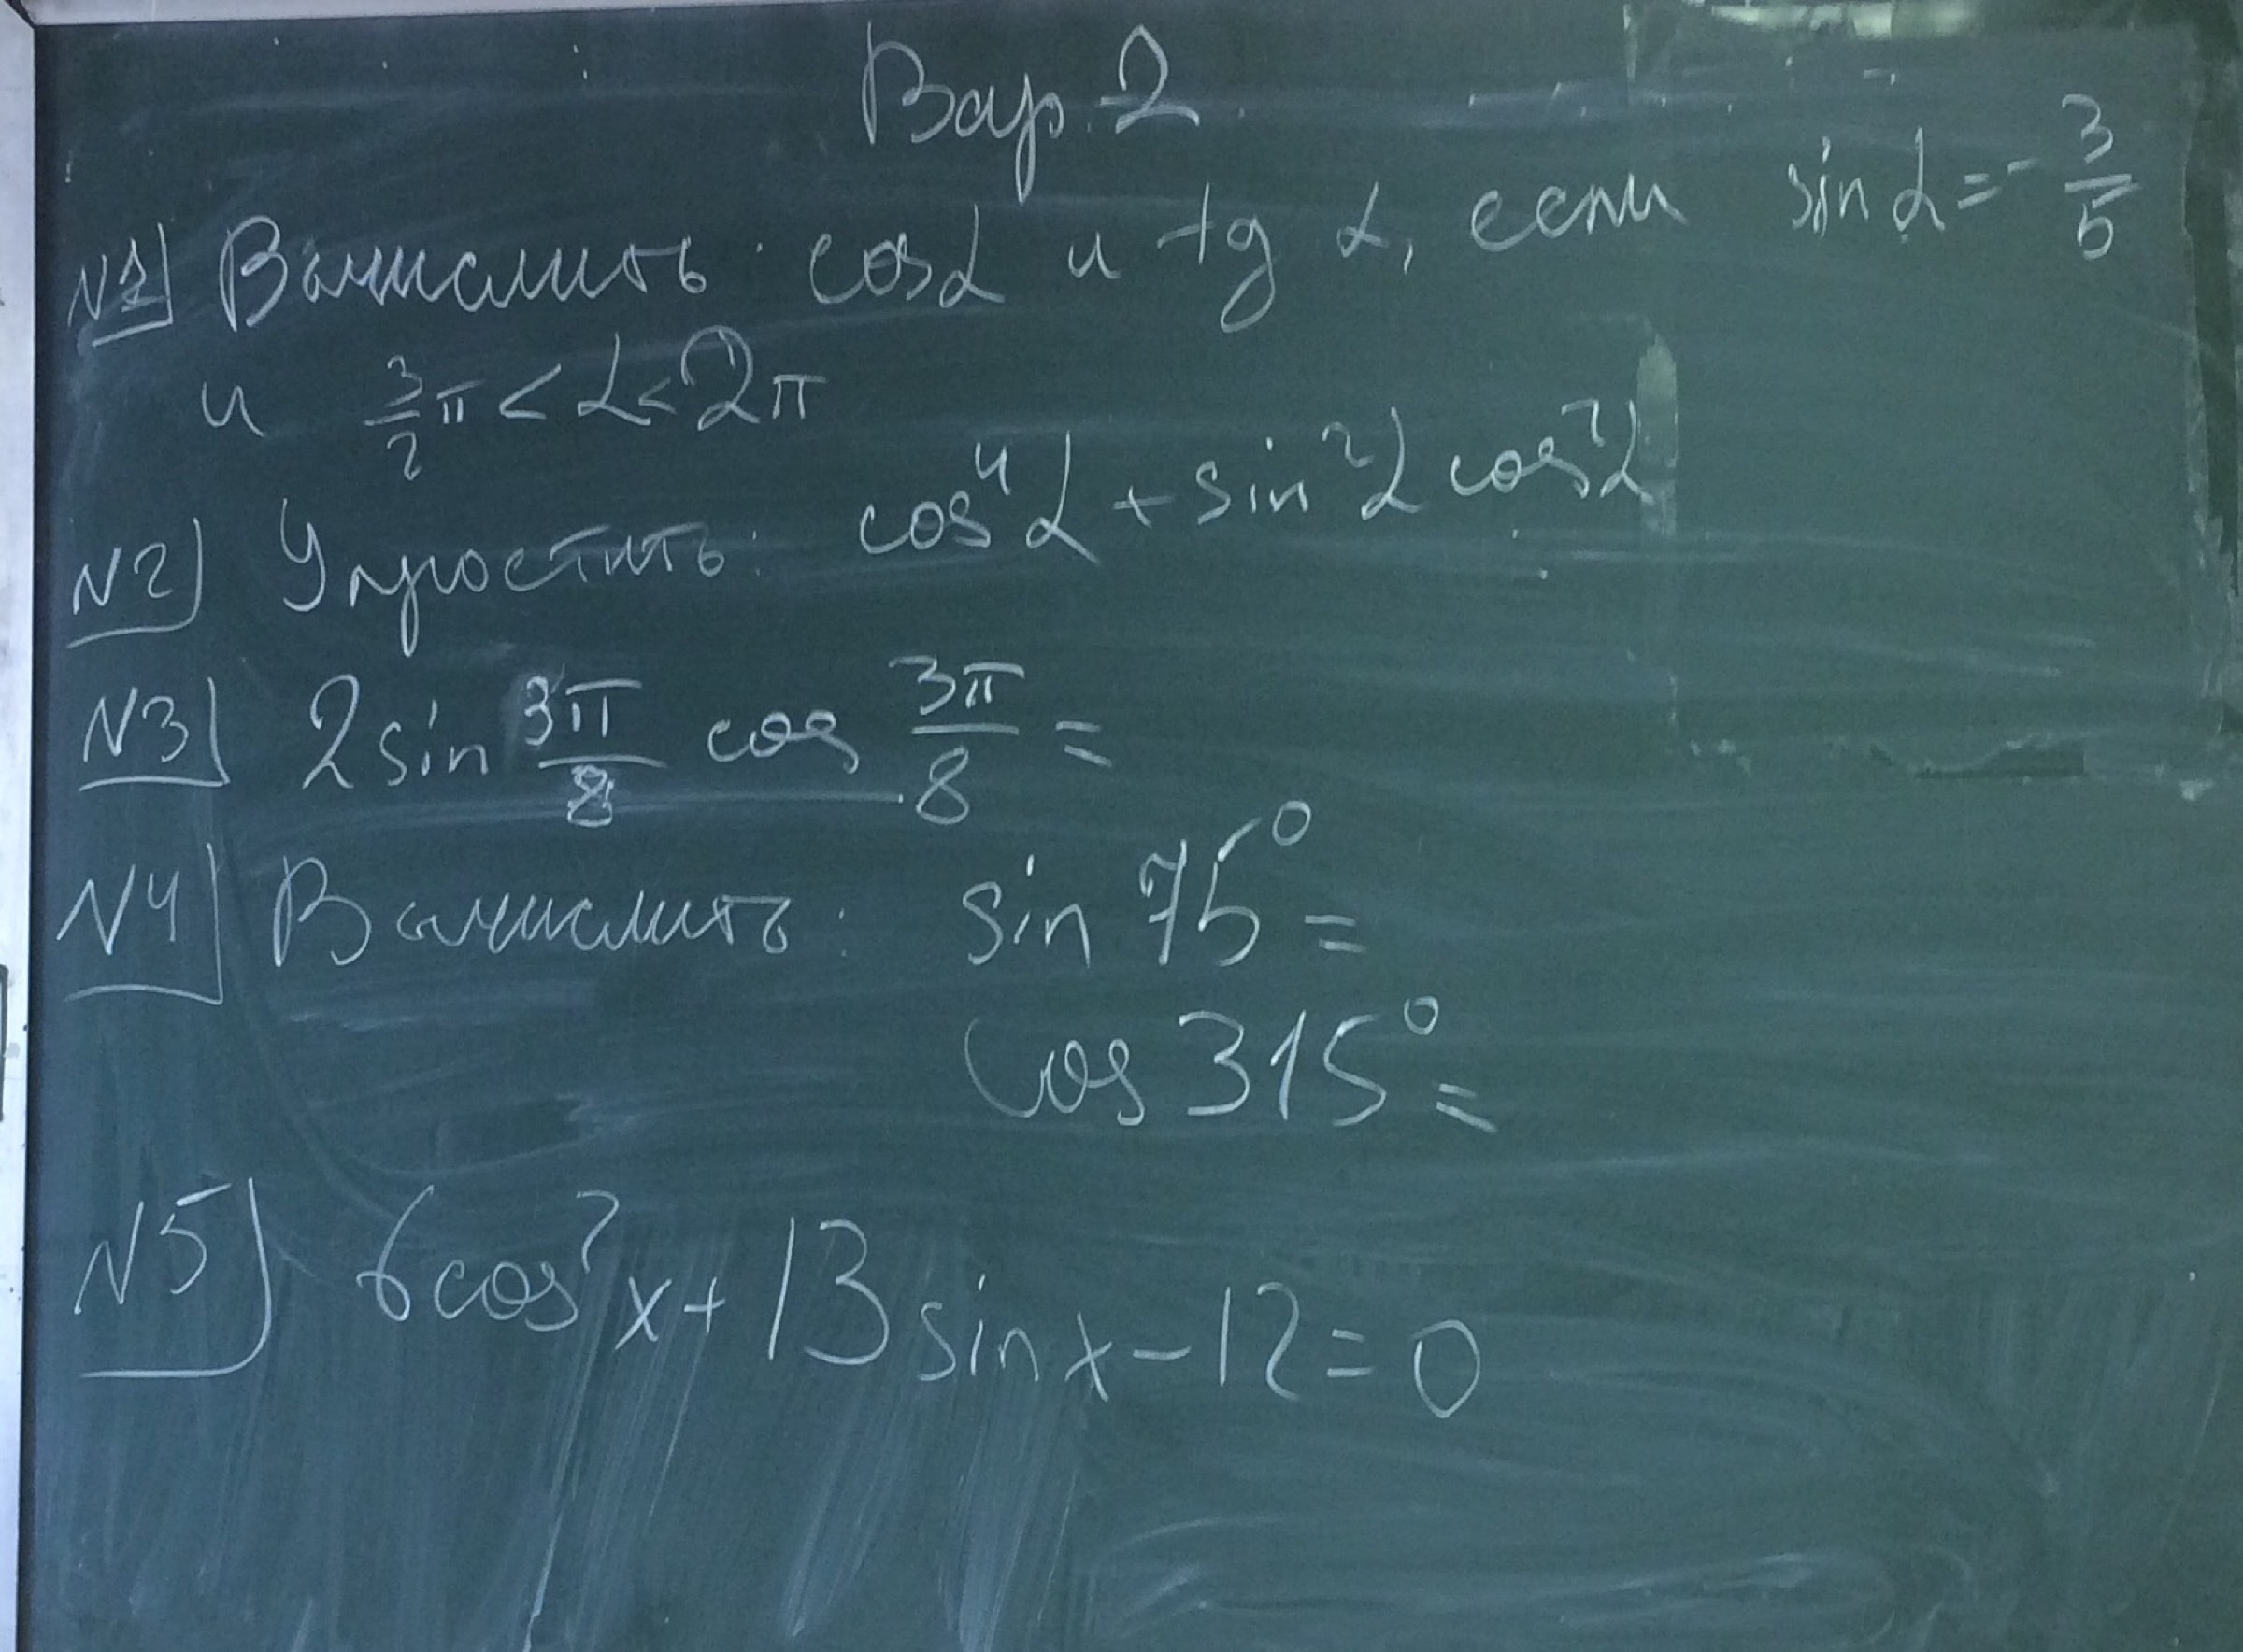 Вар. 2
№1) Вычислить cosα и tg α, если sin α = - 3/5
и 3/2 π < α < 2π
№2) Упростить: cos⁴α + sin²α cos²α
№3) 2 sin 3π/8 cos 3π/8 =
№4) Вычислить: sin 75° =
cos 315° =
№5) 6cos²x + 13 sin x - 12 = 0